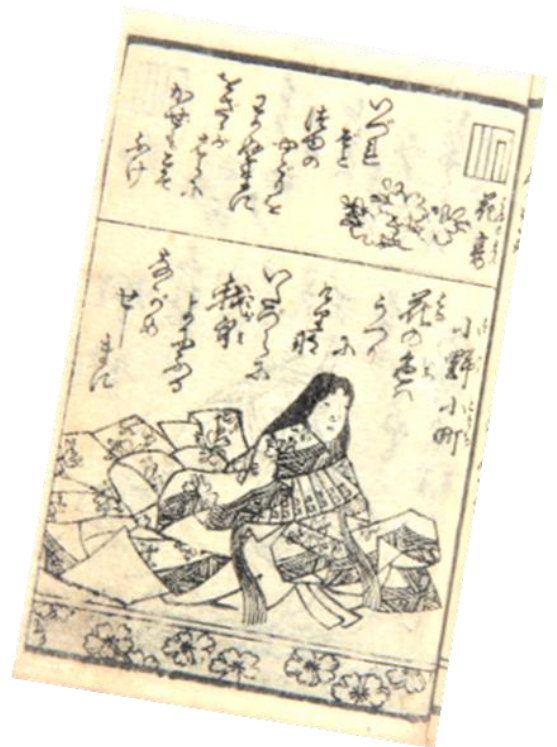 花宴
いづれ
ぞと
つゆの
やどりを
わかむまに
をざさが
はらに
かぜもこそ
ふけ
小野小町
花の色は
うつり
に
けりな
いたづらに
我身
よにふる
ながめ
せし
まに